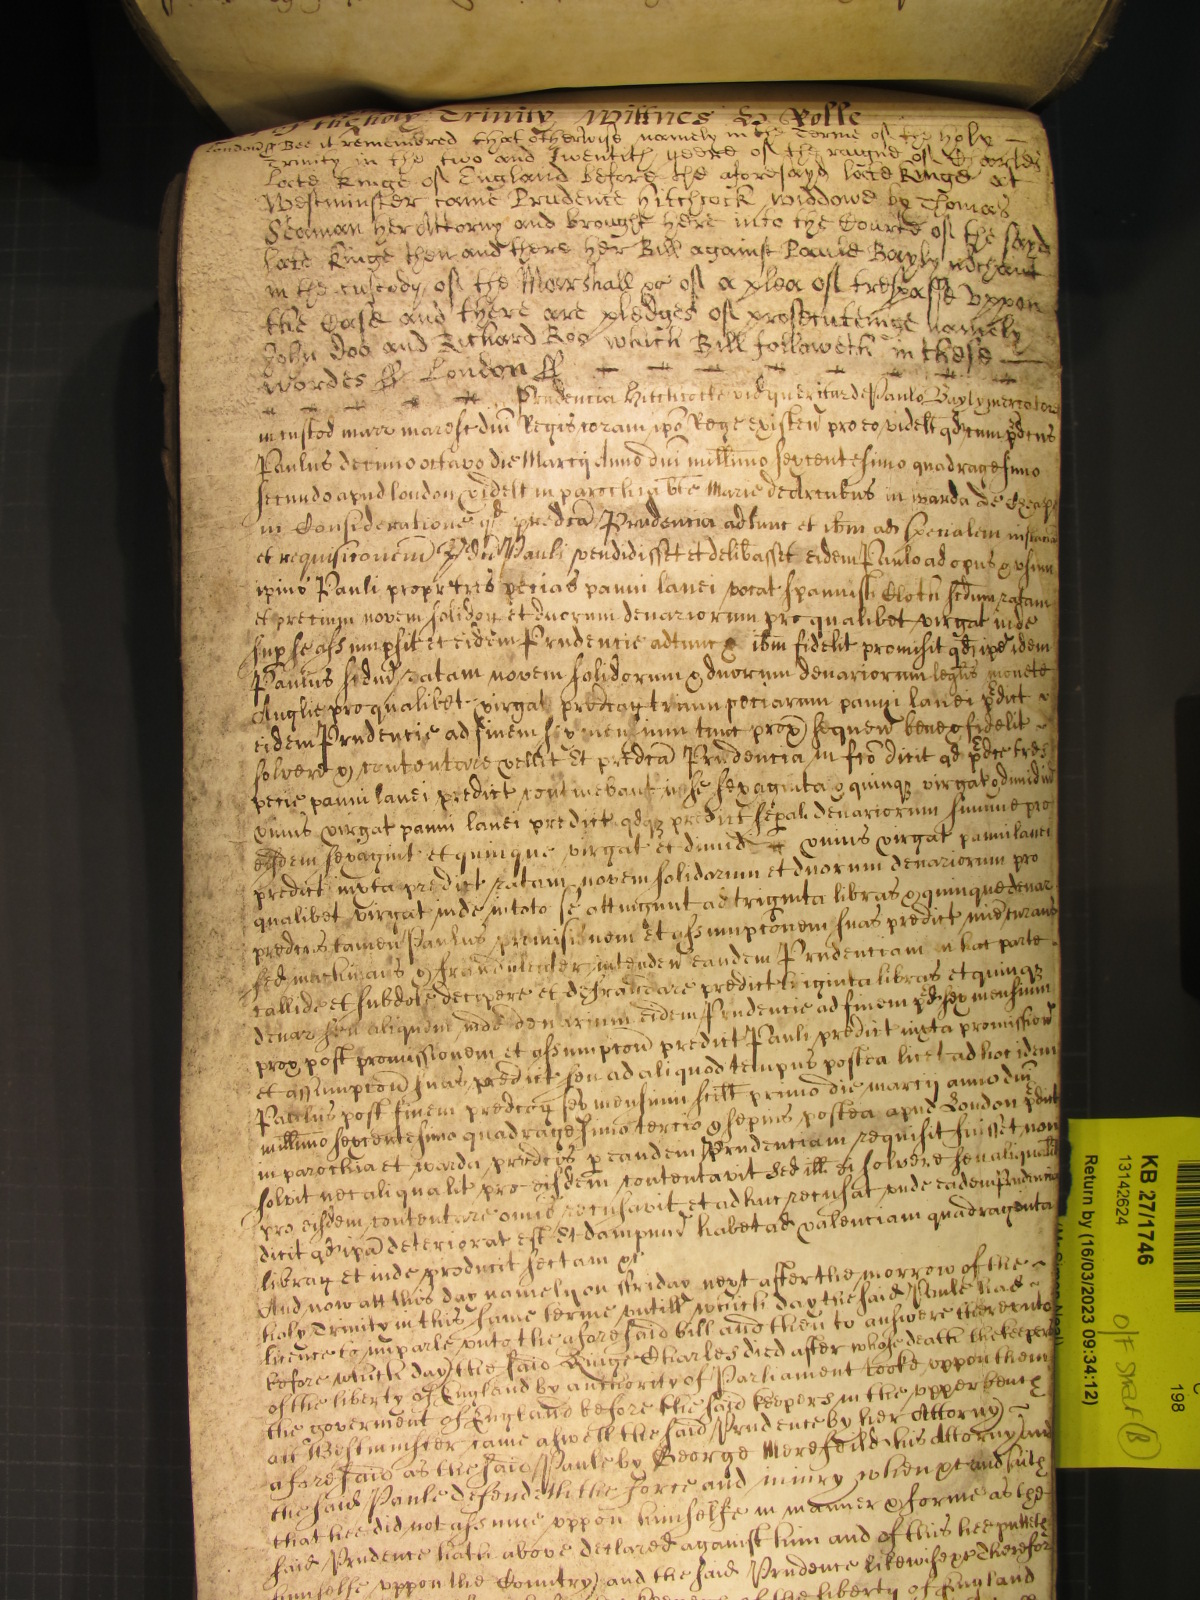 of the holy Trinity Wittnes & Rolle
London ss Bee it remembred that otherwise namely in the Terme of the holy
Trinity in the two and Twentith yeere of the raigne of Charles
late Kinge of England before the aforesayd late Kinge at
Westminster came Prudence Hitchcock widdowe by Thomas
Seaman her Attorny and brought here into the Courte of the sayd
late Kinge then and there her Bill against Paule Bayly m'chant
in the custody of the Marshall &c of a plea of trespasse uppon
the Case and there are pledges of prosecuteinge namely
John Doo and Richard Roo which Bill followeth in these
wordes ss London ss
Prudencia Hitchcocke vid queritur de Paulo Bayly mercatore
in custod marr maresc dni Regis coram ipo Rege existen pro eo videlt qd cum pdcus
Paulus decimo octavo die Marcij Anno dni millimo sexcentesimo quadragesimo
secundo apud london videlt in parochia bte Marie de Arcubus in warda de Cheape
in Consideratione qd predca Prudencia adtunc et ibm ad specialem instanc
et requisiconem pdci Pauli vendidisset et delibasset eidem Paulo ad opus & usum
ipius Pauli propr tres pecias panni lanei vocat Spannish Cloth scdum ratam
et precium novem solidor et duorum denariorum pro qualibet virgat inde
sup se assumpsit et eidem Prudencie adtunc & ibm fidelit promisit qd ipe idem
Paulus scdum ratam novem solidorum & duorum denariorum legalis monete
Anglie pro qualibet virgat predcar trium peciarum panni lanei pdict
eidem Prudencie ad finem sex mensium tunc prox sequen bene & fidelit
solvere & contentare vellit Et predca Prudencia in fco dicit qd pdce tres
pecie panni lanei predict continebant in se sexaginta & quinq virgat & dimid
unius virgat panni lanei predict qdq predict sepal denariorum summe pro
eisdem sexagint et quinque virgat et dimid unius virgat panni lanei
predict iuxta predict ratam novem solidorum et duorum denariorum pro
qualibet virgat inde in toto se attingunt ad triginta libras & quinque denar
predcus tamen Paulus promissionem et assumpconem suas predict minime curans
sed machinans & fraudulenter intenden eandem Prudenciam in hac parte
callide et subdole decipere et defraudare predict triginta libras et quinq
denar seu aliquem inde denarium eidem Prudencie ad finem pd sex mensium
prox post promissionem et assumpcon predict Pauli predict iuxta promission
et assumpcon suas predict seu ad aliquod tempus postea licet ad hoc idem
Paulus post finem predcor sex mensium scilt primo die marcij anno dni
millimo sexcentesimo quadragesimo tercio & sepius postea apud London pdict
in parochia et warda predcis p eandem Prudenciam requisit fuisset non
solvit nec aliqualit pro eisdem contentavit Sed ill ei solvere seu aliqualit
pro eisdem contentare omid recusavit et adhuc recusat unde eadem Prudencia
dicit qd ipa deteriorat est Et dampnu habet ad valenciam quadraginta
librar et inde producit sectam &c
And now att this day namely on Friday next after the morrow of the
holy Trinity in this same terme untill which day the said Paule had
licence to imparle unto the aforesaid bill and then to answere thereunto
before which day the said Kinge Charles died after whose death the keepers
of the liberty of England by authority of Parliament tooke uppon them
the goverment of England before the said keepers in the upper bench
att Westminster came aswell the said Prudence by her Attorny
aforesaid as the said Paule by George Merefeild his Attorny And
the said Paule defendeth the force and iniury when &c and saith
that hee did not assume uppon himselfe in manner & forme as the
said Prudence hath above declared against him and of this hee putteth
himselfe uppon the Country and the said Prudence likewise &c Therefore
of the liberty of England
KB 27/1746
13142624
Return by (16/03/2023 09:34:12)
198